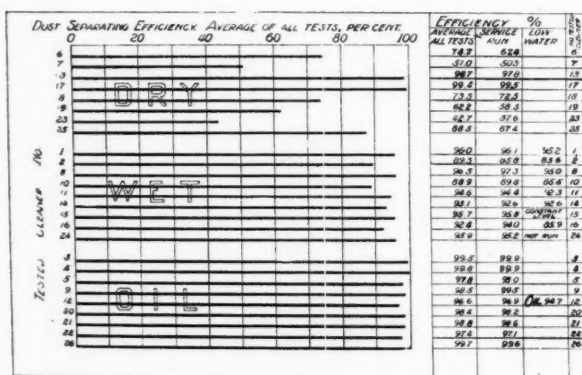 DUST SEPARATING EFFICIENCY. AVERAGE OF ALL TESTS, PER CENT.
0 20 40 60 80 100
TESTED CLEANER NO.
DRY
6
7
13
17
18
19
23
25
WET
1
2
8
10
11
14
15
16
24
OIL
3
4
5
9
12
20
21
22
26
EFFICIENCY %
AVERAGE ALL TESTS SERVICE RUN LOW WATER
51.0 50.3 7
98.7 97.8 13
99.4 99.5 17
73.5 72.5 18
62.2 58.5 19
42.7 37.6 23
88.5 87.4 25
96.0 96.1 95.2 1
89.5 85.8 83.6 2
96.5 97.3 95.0 8
88.9 89.8 86.6 10
94.6 94.4 92.3 11
95.1 92.6 92.6 14
95.7 95.8 CONSTANT LEVEL 15
92.8 94.0 85.9 16
95.9 95.2 NOT RUN 24
99.5 99.9 3
99.8 99.9 4
97.8 98.0 5
98.5 99.5 9
96.6 96.9 OIL 94.7 12
98.4 98.2 20
98.8 98.6 21
97.4 97.1 22
99.7 99.6 26